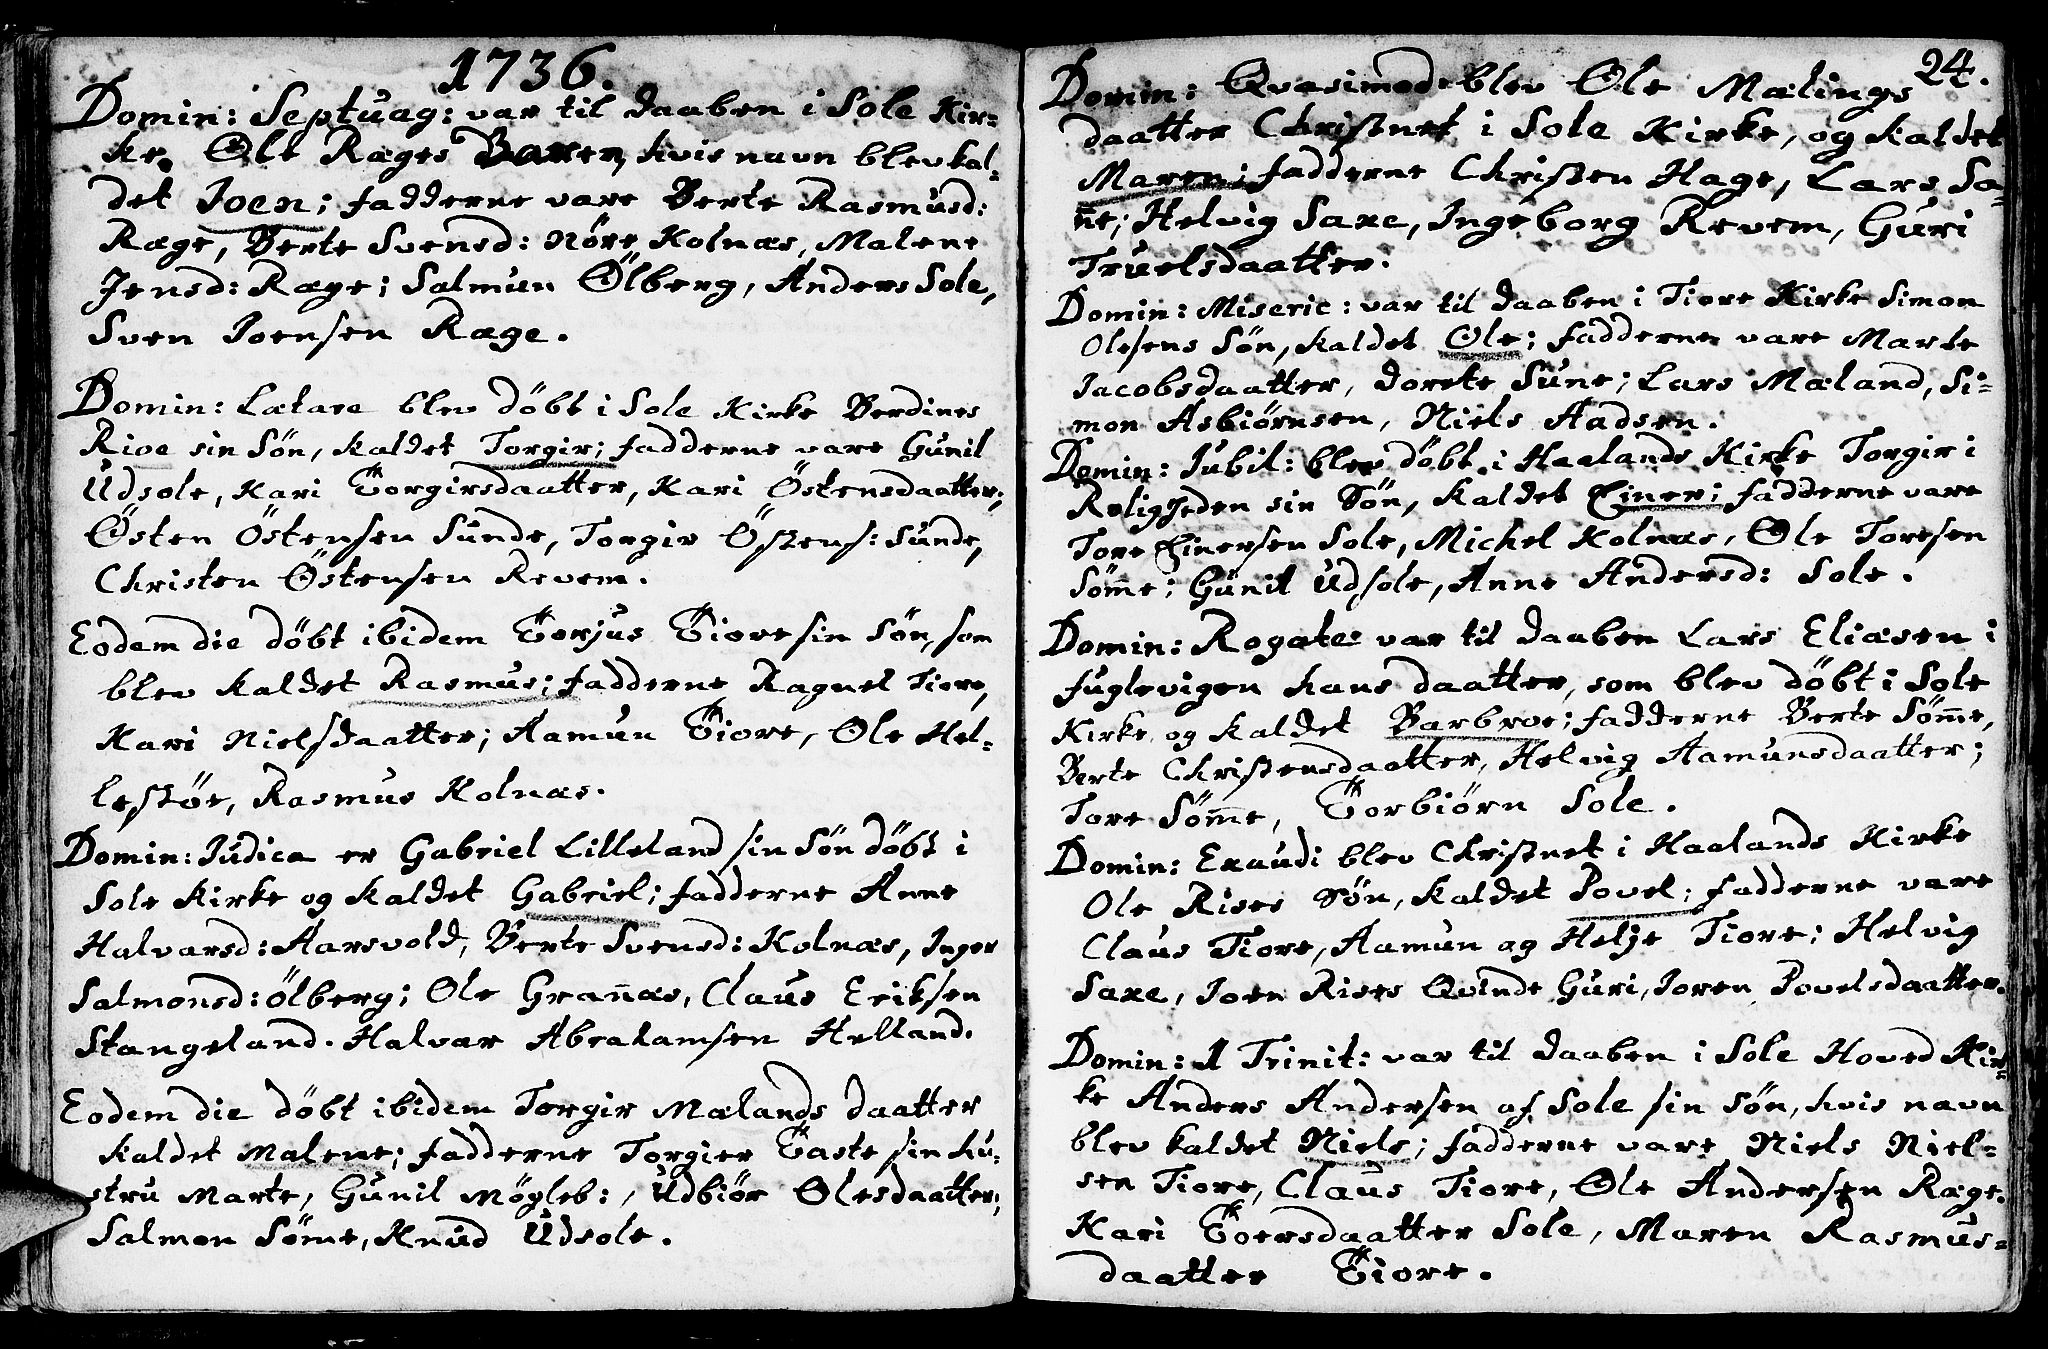 1736.
Domin: Septuag: var til daaben i Sole Kir=
ke. Ole Ræges Baren, hvis navn blev kal=
det Joen; fadderne vare Berte Rasmusd:
Ræge, Berte Svensd: Nöre Kolnæs, Malene
Jensd: Ræge; Salmun Ölberg, Anders Sole,
Sven Joensen Ræge.
Domin: Lætare blev döbt i Sole Kirke Berdines
Rioe sin Sön, kaldet Torgir; fadderne vare Gunil
Udsole, Kari Torgirsdaatter, Kari Östensdaatter;
Östen Östensen Sunde, Torgir Östens: Sunde,
Christen Östensen Revem.
Eodem die döbt ibidem Torjus Tiore sin Sön, som
blev kaldet Rasmus; fadderne Ragnel Tiore,
Kari Nielsdaatter; Aamun Tiore, Ole Hel=
lestöe, Rasmus Kolnæs.
Domin: Judica er Gabriel Lilleland sin Sön döbt i
Sole Kirke og kaldet Gabriel; fadderne Anne
Halvarsd: Aarsvold, Berte Svensd: Kolnæs, Inger
Salmonsd: Ölberg; Ole Grañæs, Claus Eriksen
Stangeland. Halvar Abrahamsen Helland.
Eodem die döbt ibidem Torgir Mælands daatter
kaldet Malene; fadderne Torgier Taste sin hu=
stru Marte, Gunil Mögleb:, Udbiör Olesdaatter;
Salmon Söme, Knud Udsole.
24.
Domin: Qvasimod: blev Ole Mælings
daatter Christnet i Sole Kirke, og kaldet
Maren; fadderne Christen Hage, Lars Sö=
m̄e; Helvig Saxe, Ingeborg Revem, Guri
Truelsdaatter.
Domin: Miseric: var til daaben i Tiore Kirke Simon
Olesens Sön, kaldet Ole; fadderne vare Marte
Jacobsdaatter, Dorete Sune; Lars Mæland, Si=
mon Asbiörnsen, Niels Aadsen.
Domin: Jubil: blev döbt i Haalands Kirke Torgir i
Roligheden sin Sön, kaldet Einer; fadderne vare
Tore Einersen Sole, Michel Kolnæs, Ole Toresen
Söm̄e; Gunil Udsole, Anne Andersd: Sole.
Domin: Rogate: var til daaben Lars Eliasen i
fuglevigen hans daatter, som blev döbt i Sole
Kirke og kaldet Barbroe; fadderne Berte Söm̄e,
Berte Christensdaatter, Helvig Aamunsdaatter;
Tore Söm̄e, Torbiörn Sole.
Domin: Exaudi blev Christnet i Haalands Kirke
Ole Rises Sön, kaldet Povel; fadderne vare
Claus Tiore, Aamun og Helje Tiore; Helvig
Saxe, Joen Rises Qvinde Guri, Joren Povelsdaatter.
Domin: 1 Trinit: var til daaben i Sole Hoved Kir=
ke Anders Andersen af Sole sin Sön, hvis navn
blev kaldet Niels; fadderne vare Niels Niel=
sen Tiore, Claus Tiore, Ole Andersen Ræge.
Kari Toersdaatter Sole, Maren Rasmus=
daatter Tiore.